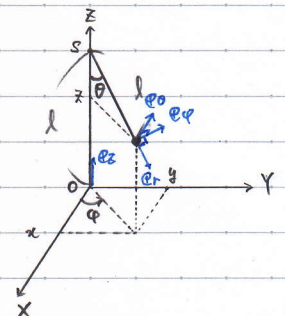 Z
S
θ
l
z
eθ
eφ
l
ez
er
O
y
Y
φ
x
X